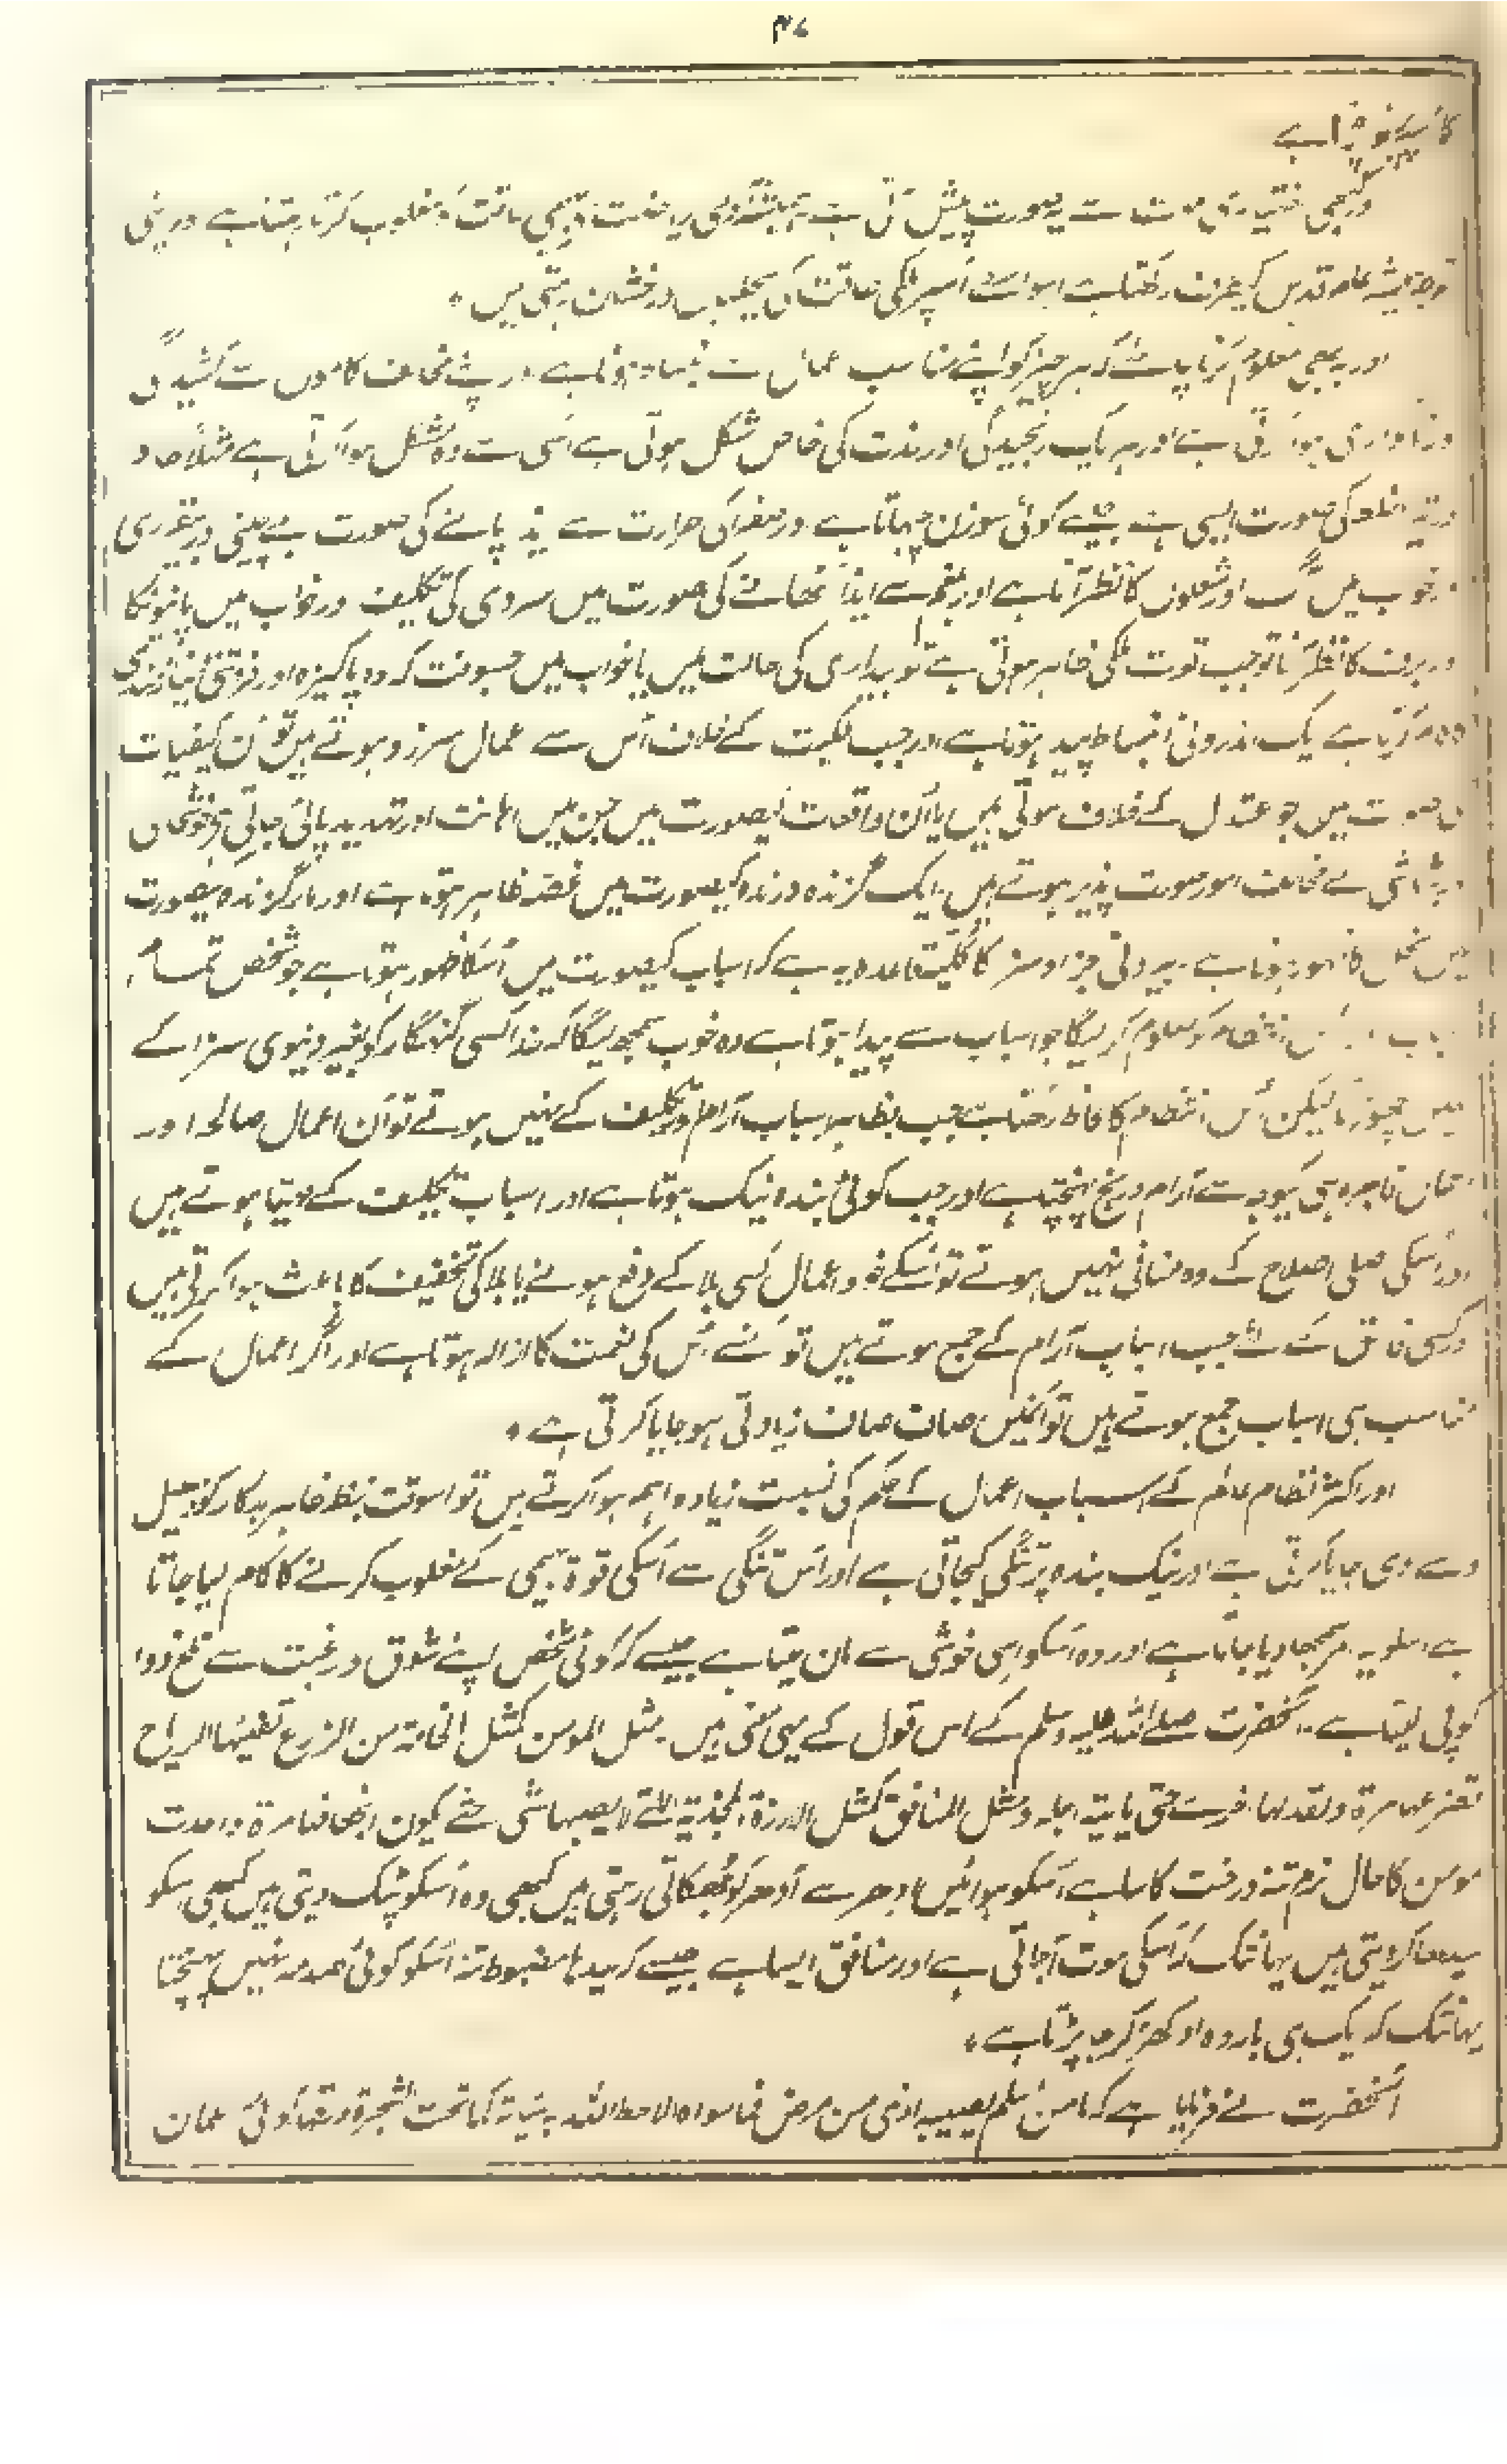 ۴۷
کا
توجہ ہمیشہ عالم قدس کی طرف رکھتا ہے اسواسطے اسپر ملکی حالت کی بجلیاں درخشان رہتی ہیں۔
اور یہ بھی معلوم کرنا چاہیے کہ ہر چیز کو اپنے مناسب اعمال سے انبساط ہوتا ہے اور اپنے مخالف کاموں سے کشیدگی
اور ہر ایک رنجیدگی اور لذت کی خاص شکل ہوتی ہے اسی سے وہ متشکل ہوا کرتی ہے مثلاً حاد
خلط کی صورت ایسی ہے جیسے کوئی سوزن چبھاتا ہے اور صفرا کی حرارت سے ایذا پانے کی صورت بے چینی اور بیقراری
اور خواب میں آگ اور شعلوں کا نظر آنا ہے اور بلغم سے ایذا اٹھانے کی صورت میں سردی کی تکلیف اور خواب میں پانیونکا
اور برف کا نظر آنا تو جب قوت ملکی ظاہر ہوتی ہے تو بیداری کی حالت میں یا خواب میں جسوقت کہ وہ پاکیزہ اور فروتنی نیازمندی
ہے ایک اندرونی انبساط پیدا ہوتا ہے اور جب ملکیت کے خلاف اُس سے اعمال سرزد ہوتے ہیں تو اُن کیفیات
کی صورت میں جو اعتدال کے خلاف ہوتی ہیں یا اُن واقعات کیصورت میں جن میں اہانت اور تہدید پائی جاتی ہے
کے مخالف امور صورت پذیر ہوتے ہیں ایک گزندہ درندہ کیصورت میں غصہ ظاہر ہوتا ہے اور مار گزندہ کیصورت
میں بخل کا ظہور ہوتا ہے۔ بیرونی جزا و سزا کا کلیہ قاعدہ یہ ہے کہ اسباب کیصورت میں اُسکا ظہور ہوتا ہے جو شخص تمام
اسباب اور اُس انتظام کو معلوم کر لیگا جو اسباب سے پیدا ہوتا ہے وہ خوب سمجھ لیگا کہ خدا کسی گنہگار کو بغیر دنیوی سزا کے
نہیں چھوڑتا لیکن اُس انتظام کا لحاظ رکھتا ہے جب بظاہر اسباب آرام و تکلیف کے نہیں ہوتے تو اُن اعمال صالحہ اور
اعمال فاجرہ ہی کیوجہ سے آرام و رنج پہنچتا ہے اور جب کوئی بندہ نیک ہوتا ہے اور اسباب تکلیف کے مہیا ہوتے ہیں
اور اُسکی اصلی اصلاح کے وہ منافی نہیں ہوتے تو اُسکے اعمال کسی بلا کے دفع ہونے یا بلا کی تخفیف کا باعث ہوا کرتی ہیں
اور کسی فاسق کے لئے جب اسباب آرام کے جمع ہوتے ہیں تو اُن سے اُس کی نعمت کا ازالہ ہوتا ہے اور اگر اعمال کے
مناسب ہی اسباب جمع ہوتے ہیں تو اُنمیں صاف صاف زیادتی ہو جایا کرتی ہے۔
اور اکثر نظام عالم کے اسباب اعمال کے حکم کی نسبت زیادہ اہم ہوا کرتے ہیں تو اسوقت بنظر ظاہر بدکار کو ڈھیل
دے دی جایا کرتی ہے اور نیک بندہ پر تنگی کیجاتی ہے اور اس تنگی سے اُسکی قوۃ بہیمی کے مغلوب کرنے کا کام لیا جاتا
ہے اسکو یہ امر سمجھا دیا جاتا ہے اور وہ اُسکو اسی خوشی سے مان لیتا ہے جیسے کہ کوئی شخص اپنے شوق و رغبت سے تلخ دوا
کو پی لیتا ہے۔ آنحضرت صلے اللہ علیہ وسلم کے اس قول کے یہی معنی ہیں۔ مثل المومن کمثل الخامۃ من الزرع تفیئہا الریاح
تصرعہا مرۃ و تعدلہا اخرے حتی یاتیہ اجلہ و مثل المنافق کمثل الارزۃ المجذیۃ التے لا یصیبہا شی حتے یکون انجعافہا مرۃ واحدت
مومن کا حال نرم تنہ درخت کا سا ہے اُسکو ہوائیں ادھر سے اُدھر کو جھکاتی رہتی ہیں کبھی وہ اُسکو پٹک دیتی ہیں کبھی اسکو
سیدھا کر دیتی ہیں یہانتک کہ اُسکی موت آجاتی ہے اور منافق ایسا ہے جیسے کہ سیدھا مضبوط تنہ اُسکو کوئی صدمہ نہیں پہنچتا
یہانتک کہ ایک ہی بار وہ اوکھڑ کر جا پڑتا ہے۔
آنحضرت نے فرمایا ہے کہ ما من مسلم یصیبہ اذی من مرض فما سواہ الا حط اللہ بہ سیئاتہ کما تحت الشجرۃ ورقہا کوئی مسلمان